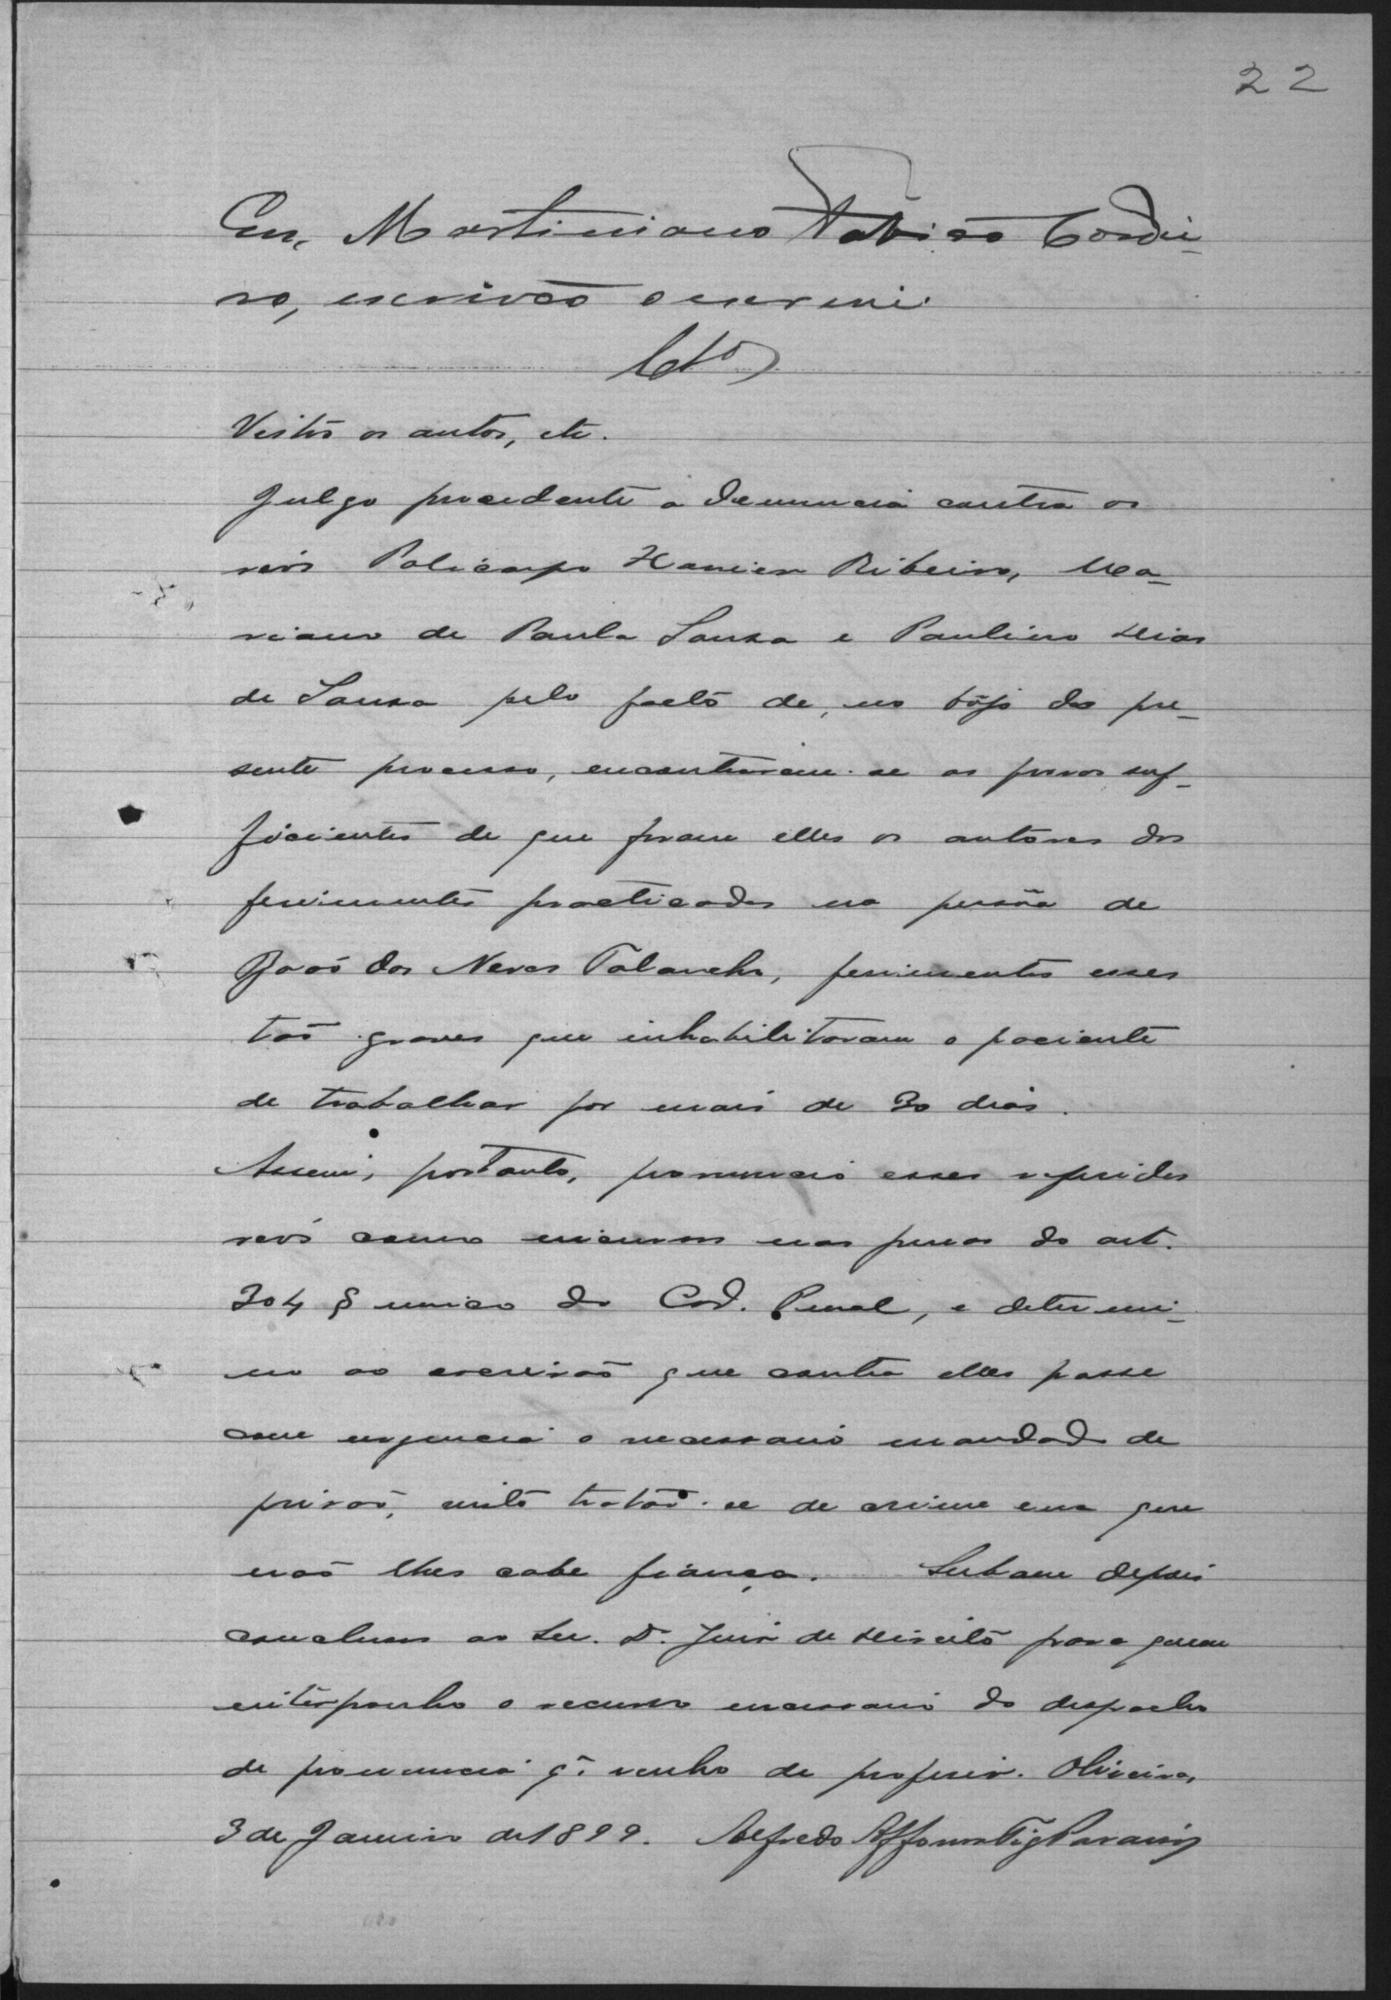 22
Eu, Martiniano Fabião Cordei-
ro, escrivão o escrevi.
Clº
Visto os autos, etc.
Julgo procedente a denuncia contra os
réos Policarpo Xavier Ribeiro, Ma-
riano de Paula Souza e Paulino Dias
de Souza pelo facto de, no bôjo do pre-
sente processo, encontrarem-se as provas suf-
ficientes de que foram elles os autores dos
ferimentos practicados na pessôa de
João das Neves Palancho, ferimentos esses
tão graves que inhabilitaram o paciente
de trabalhar por mais de 30 dias.
Assim, portanto, pronuncio esses referidos
reos como incursos nas penas do art.
304 § unico do Cod. Penal, e determi-
no ao escrivão que contra elles passe
com urgencia o necessario mandado de
prisão, visto tratar-se de crime em que
não lhes cabe fiança. Subam depois
conclusos ao Snr. Dr. Juiz de Direito para quem
interponho o recurso necessario do despacho
de pronuncia q. venho de proferir. Oliveira,
3 de Janeiro de 1899. Alfredo Affonso